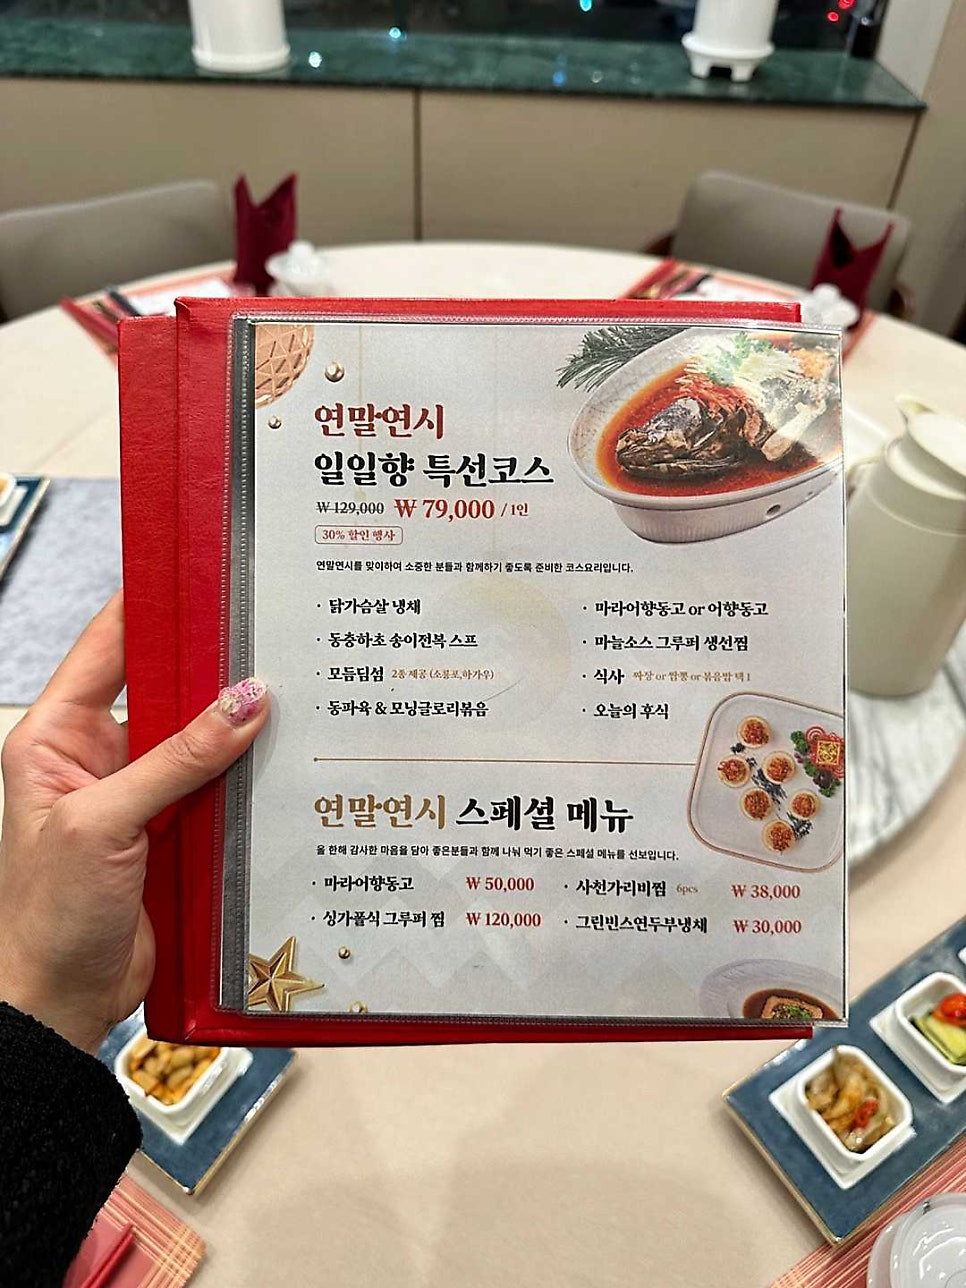 연말연시
일일향 특선코스
₩ 129,000 ₩ 79,000 / 1인
30% 할인 행사
연말연시를 맞이하여 소중한 분들과 함께하기 좋도록 준비한 코스요리입니다.
· 닭가슴살 냉채
· 동충하초 송이전복 스프
· 모듬딤섬 2종 제공 (소룡포,하가우)
· 동파육 & 모닝글로리볶음
· 마라어향동고 or 어향동고
· 마늘소스 그루퍼 생선찜
· 식사 짜장 or 짬뽕 or 볶음밥 택 1
· 오늘의 후식
연말연시 스페셜 메뉴
올 한해 감사한 마음을 담아 좋은분들과 함께 나눠 먹기 좋은 스페셜 메뉴를 선보입니다.
· 마라어향동고 ₩ 50,000
· 싱가폴식 그루퍼 찜 ₩ 120,000
· 사천가리비찜 6pcs ₩ 38,000
· 그린빈스연두부냉채 ₩ 30,000